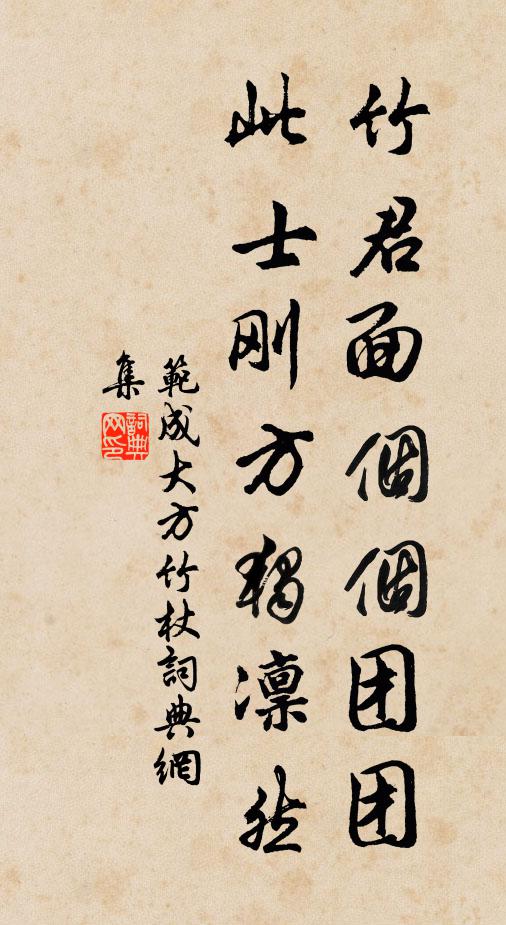 竹君面個個团团
此士刚方独凛然
範成大方竹杖詞典網
集
詞典
网印